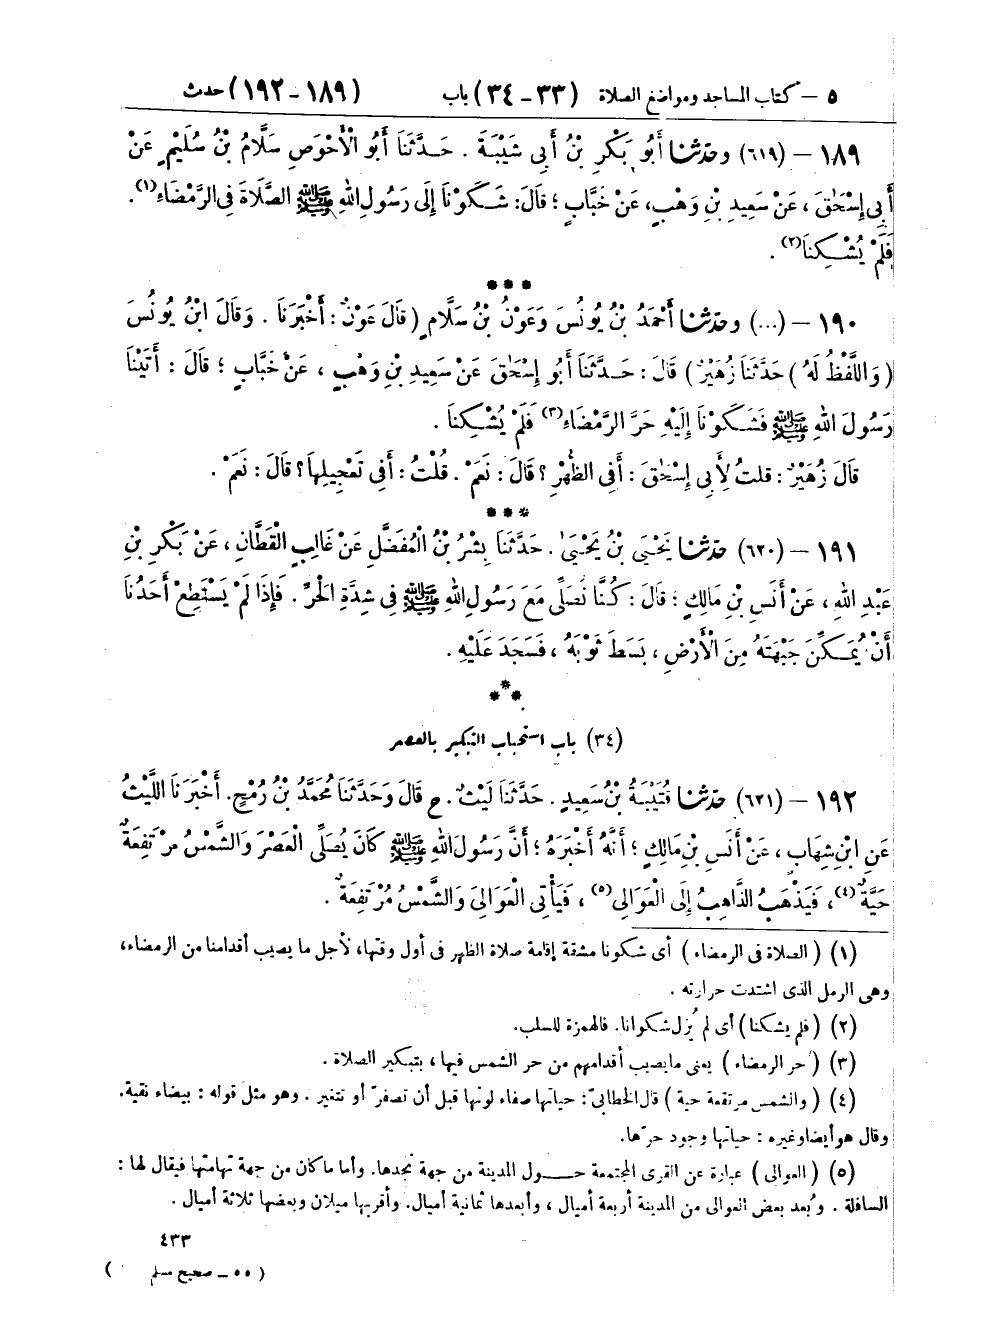 ٥ – كتاب المساجد ومواضع الصلاة (٣٣ – ٣٤) باب (١٨٩ – ١٩٢) حدث
١٨٩ – (٦١٩) وحَدَّثَنَا أَبُو بَكْرِ بْنُ أَبِي شَيْبَةَ . حَدَّثَنَا أَبُو الْأَحْوَصِ سَلَّامُ بْنُ سُلَيْمٍ عَنْ
أَبِي إِسْحَٰقَ ، عَنْ سَعِيدِ بْنِ وَهْبٍ، عَنْ خَبَّابٍ ؛ قَالَ: شَكَوْنَا إِلَى رَسُولِ اللهِ ﷺ الصَّلَاةَ فِي الرَّمْضَاءِ(١).
فَلَمْ يُشْكِنَا(٢) .
***
١٩٠ – (...) وحَدَّثَنَا أَحْمَدُ بْنُ يُونُسَ وَعَوْنُ بْنُ سَلَّامٍ ( قَالَ عَوْنٌ : أَخْبَرَنَا . وَقَالَ ابْنُ يُونُسَ
( وَاللَّفْظُ لَهُ ) حَدَّثَنَا زُهَيْرٌ ) قَالَ : حَدَّثَنَا أَبُو إِسْحَٰقَ عَنْ سَعِيدِ بْنِ وَهْبٍ ، عَنْ خَبَّابٍ ؛ قَالَ : أَتَيْنَا
رَسُولَ اللهِ ﷺ فَشَكَوْنَا إِلَيْهِ حَرَّ الرَّمْضَاءِ(٣) فَلَمْ يُشْكِنَا .
قَالَ زُهَيْرٌ : قلتُ لِأَبِي إِسْحَٰقَ : أَفِي الظُّهْرِ ؟ قَالَ : نَعَمْ . قُلْتُ : أَفِي تَعْجِيلِهَا ؟ قَالَ : نَعَمْ .
***
١٩١ – (٦٢٠) حَدَّثَنَا يَحْيَى بْنُ يَحْيَىٰ . حَدَّثَنَا بِشْرُ بْنُ الْمُفَضَّلِ عَنْ غَالِبٍ الْقَطَّانِ ، عَنْ بَكْرِ بْنِ
عَبْدِ اللهِ ، عَنْ أَنَسِ بْنِ مَالِكٍ ؛ قَالَ : كُنَّا نُصَلِّي مَعَ رَسُولِ اللهِ ﷺ فِي شِدَّةِ الْحَرِّ . فَإِذَا لَمْ يَسْتَطِعْ أَحَدُنَا
أَنْ يُمَكِّنَ جَبْهَتَهُ مِنَ الْأَرْضِ ، بَسَطَ ثَوْبَهُ ، فَسَجَدَ عَلَيْهِ .
***
(٣٤) باب استحباب التبكير بالعصر
١٩٢ – (٦٢١) حَدَّثَنَا قُتَيْبَةُ بْنُ سَعِيدٍ . حَدَّثَنَا لَيْثٌ . ح قَالَ وَحَدَّثَنَا مُحَمَّدُ بْنُ رُمْحٍ. أَخْبَرَنَا اللَّيْثُ
عَنِ ابْنِ شِهَابٍ ، عَنْ أَنَسِ بْنِ مَالِكٍ ؛ أَنَّهُ أَخْبَرَهُ ؛ أَنَّ رَسُولَ اللهِ ﷺ كَانَ يُصَلِّي الْعَصْرَ وَالشَّمْسُ مُرْتَفِعَةٌ
حَيَّةٌ (٤)، فَيَذْهَبُ الذَّاهِبُ إِلَى الْعَوَالِي(٥) ، فَيَأْتِي الْعَوَالِيَ وَالشَّمْسُ مُرْتَفِعَةٌ .
(١) ( الصلاة فى الرمضاء ) أى شكونا مشقة إقامة صلاة الظهر فى أول وقتها، لأجل ما يصيب أقدامنا من الرمضاء،
وهى الرمل الذى اشتدت حرارته .
(٢) ( فلم يشكنا ) أى لم يُزل شكوانا. فالهمزة للسلب.
(٣) ( حر الرمضاء ) يعنى مايصيب أقدامهم من حر الشمس فيها ، بتبكير الصلاة .
(٤) ( والشمس مرتفعة حية ) قال الخطابىّ : حياتها صفاء لونها قبل أن تصفرّ أو تتغير . وهو مثل قوله : بيضاء نقية.
وقال هو أيضا وغيره : حياتها وجود حرّها.
(٥) ( العوالى ) عبارة عن القرى المجتمعة حـول المدينة من جهة نجدها. وأما ماكان من جهة تهامتها فيقال لها :
السافلة . وبُعد بعض العوالى من المدينة أربعة أميال ، وأبعدها ثمانية أميال. وأقربها ميلان وبعضها ثلاثة أميال .
٤٣٣
( ٥٥ – صحيح مسلم )